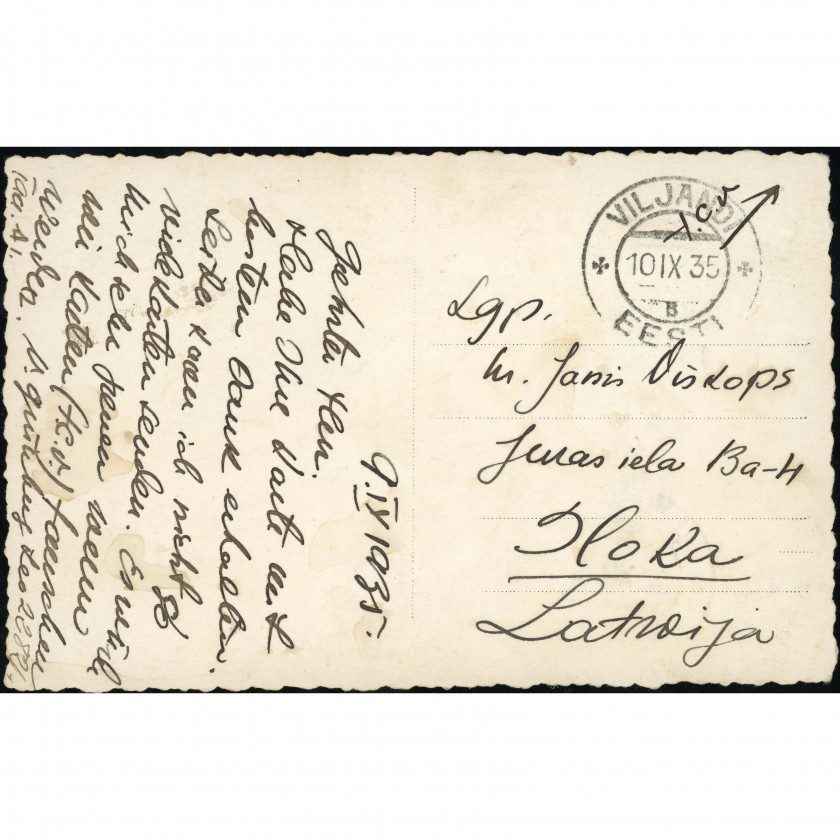 9.IX 1935.
Geehrter Herr.
Habe Ihre Karte mit
bestem Dank erhalten.
Leider kann ich nicht so
viele Karten senden. Es würde
mich sehr freuen wenn
wir Karten (t.c.v.) tauschen
werden.
VILJANDI
10 IX 35
B
EESTI
t.c.v
Lgp.
hr. Janis Viskops
Juras iela 13a-4
Sloka
Latwija